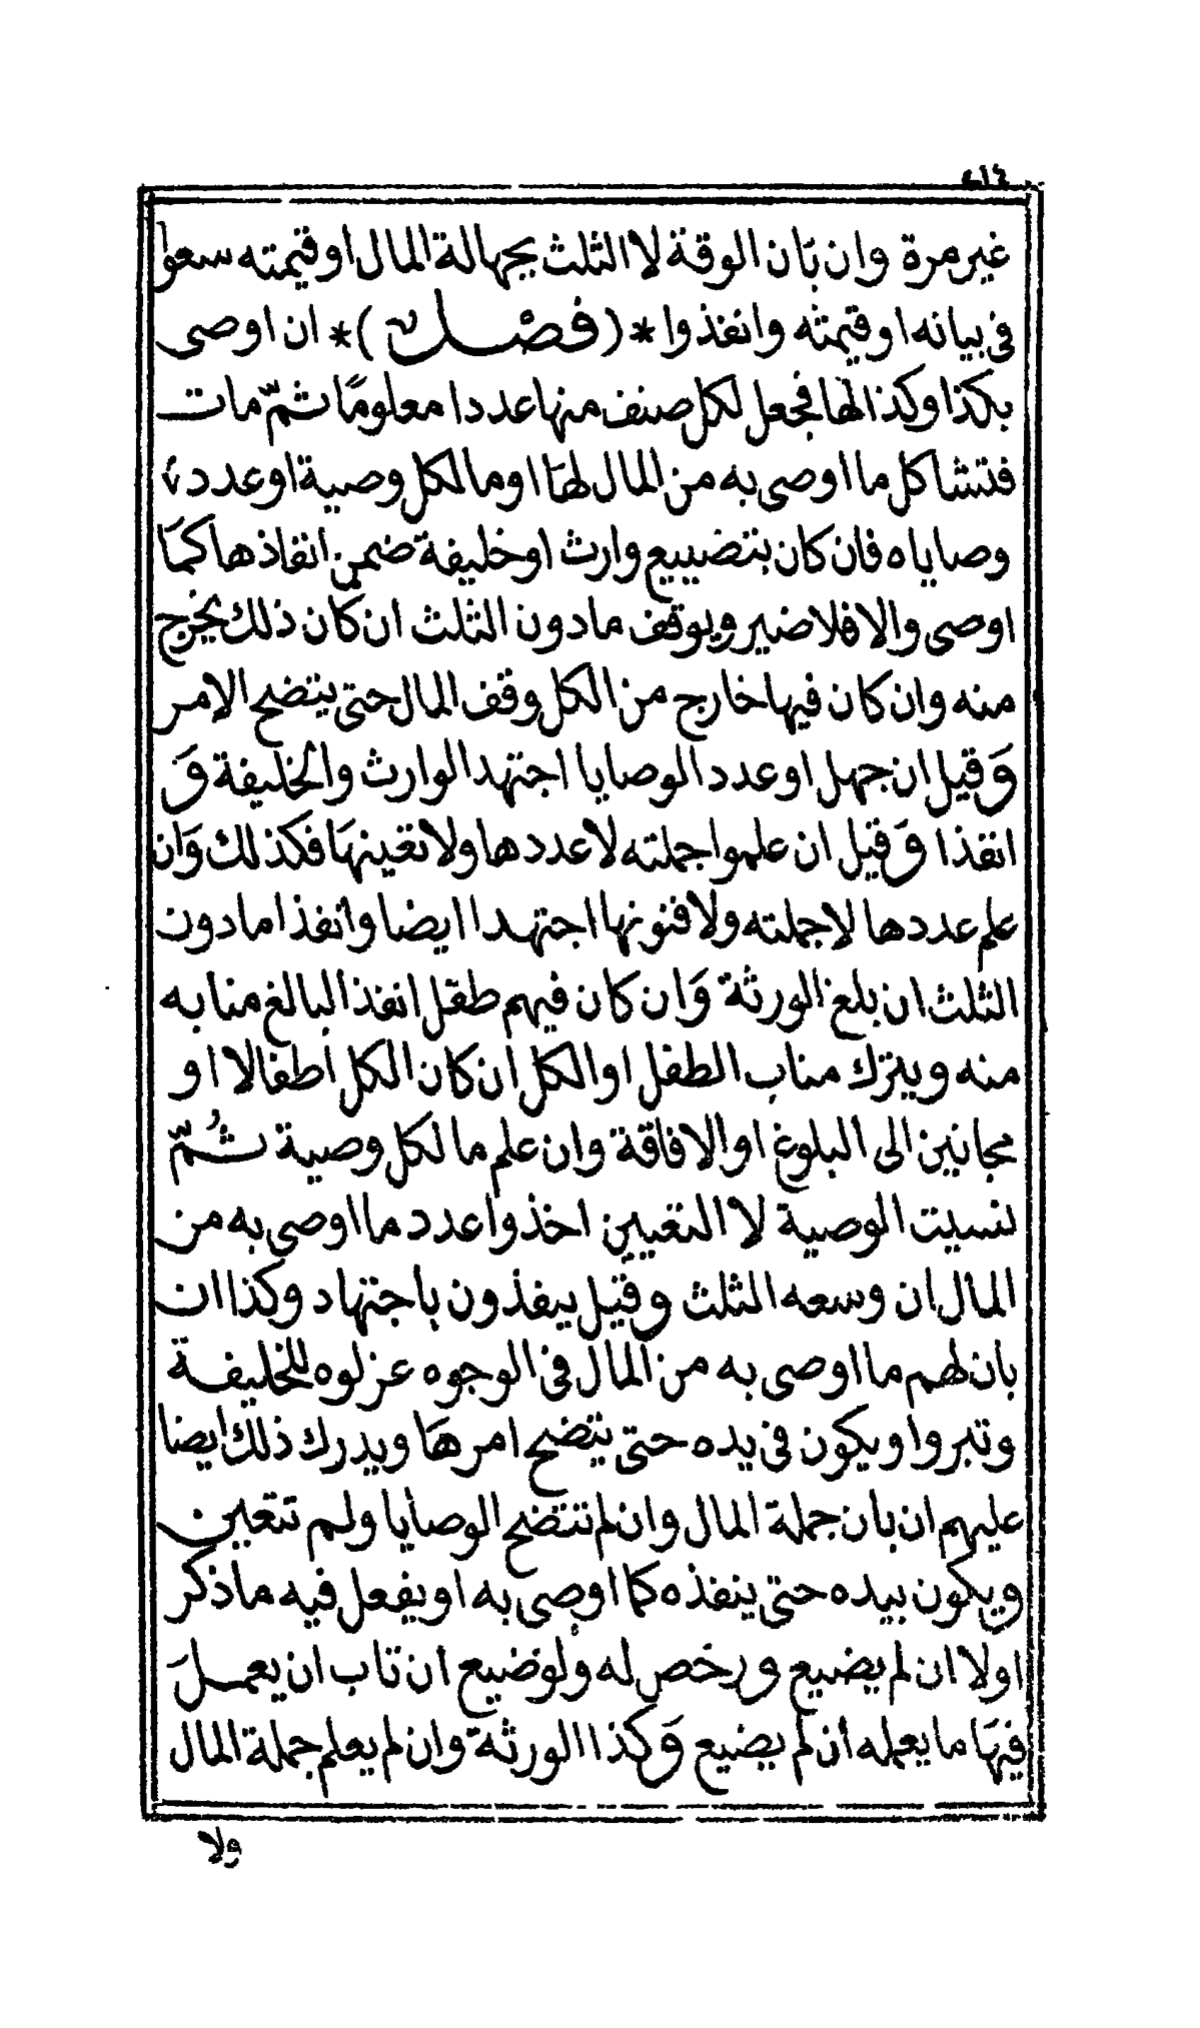 ٤١٤
غير مرة وان بَان الوقة لا الثلث بجهالة المال او قيمته سعوا
في بيانه او قيمته وانفذوا *(فصل)* ان اوصى
بكذا وكذا لها فجعل لكل صنف منها عددا معلومًا ثمّ مات
فتشاكل ما اوصى به من المال لهَا او ما لكل وصية او عدد
وصاياه فان كان بتضييع وارث او خليفة ضمن انفاذها كمَا
اوصى والا فلا ضير ويوقف ما دون الثلث ان كان ذلك يخرج
منه وان كان فيها خارج من الكل وقف المال حتى يتضح الامر
وَقيل ان جهل او عدد الوصايا اجتهد الوارث والخليفة وَ
انفذا وَقيل ان علموا جملته لا عددها ولا تعينهَا فكذلك وَان
علم عددها لا جملته ولا فنونها اجتهدا ايضا وانفذا ما دون
الثلث ان بلغ الورثة وَان كان فيهم طفل انفذ البالغ منابه
منه ويترك مناب الطفل او الكل ان كان الكل أطفالا او
مجانين الى البلوغ او الافاقة وان علم ما لكل وصية ثُمّ
نسيت الوصية لا التعيين اخذوا عدد ما اوصى به من
المال ان وسعه الثلث وقيل ينفذون باجتهاد وكذا ان
بان لهم ما اوصى به من المال في الوجوه عزلوه للخليفة
وتبروا ويكون في يده حتى يتضح امرهَا ويدرك ذلك ايضا
عليهم ان بان جملة المال وان لم تتضح الوصايا ولم تتعين
ويكون بيده حتى ينفذه كما اوصى به او يفعل فيه ما ذكر
اولا ان لم يضيع ورخص له ولو ضيع ان تاب ان يعملَ
فيهَا ما يعمله أن لم يضيع وَكذا الورثة وان لم يعلم جملة المال
ولا